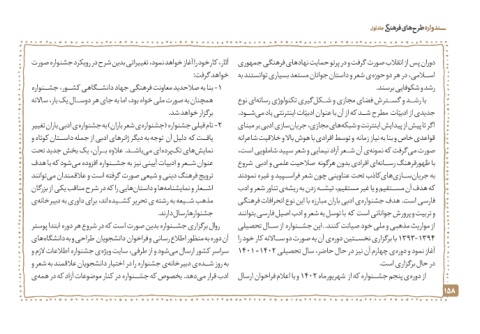 سند واره طرح‌های فرهنگی جلد اول
دوران پس از انقلاب صورت گرفت و در پرتو حمایت نهادهای فرهنگی جمهوری
اسلامی، در هر دو حوزه‌ی شعر و داستان جوانان مستعد بسیاری توانستند به
رشد و شکوفایی برسند.
با رشد و گسترش فضای مجازی و شکل‌گیری تکنولوژی رسانه‌ای نوع
جدیدی از ادبیّات مطرح شد که از آن با عنوان ادبیّات اینترنتی یاد می‌شود.
اگر تا پیش از پیدایش اینترنت و شبکه‌های مجازی، جریان‌سازی ادبی بر مبنای
قواعدی خاص و بنا به نیاز زمانه و توسط افرادی با هوش بالا و خلاقیت شاعرانه
صورت می‌گرفت که نمونه‌ی آن شعر آزاد نیمایی و شعر سپید شاملویی است،
با ظهور فرهنگ رسانه‌ای افرادی بدون هرگونه صلاحیت علمی و ادبی شروع
به جریان‌سازی‌های کاذب تحت عناوینی چون شعر فراسپید و غیره نمودند
که هدف آن مستقیم و یا غیر مستقیم، تیشه زدن به ریشه‌ی تناور شعر و ادب
فارسی است. هدف جشنواره‌ی ادبی باران مبارزه با این نوع انحرافات فرهنگی
و تربیت و پرورش جوانانی است که با توسل به شعر و ادب اصیل فارسی بتوانند
از مواریث مذهبی و ملی خود صیانت کنند. این جشنواره از سال تحصیلی
۱۳۹۴-۱۳۹۳ با برگزاری نخستین دوره‌ی آن به صورت دو سالانه کار خود را
آغاز نمود و دوره‌ی چهارم آن نیز در حال حاضر، سال تحصیلی ۱۴۰۲-۱۴۰۱
در حال برگزاری است.
از دوره‌ی پنجم جشنواره که از شهریور ماه ۱۴۰۲ و با اعلام فراخوان ارسال
آثار، کار خود را آغاز خواهد نمود، تغییراتی بدین شرح در رویکرد جشنواره صورت
خواهد گرفت:
۱- بنا به صلاحدید معاونت فرهنگی جهاد دانشگاهی کشور، جشنواره
همچنان به صورت ملی خواه بود، اما به جای هر دو سال یک بار، سالانه
برگزار خواهد شد.
۲- نام قبلی جشنواره (جشنواره‌ی شعر باران) به جشنواره‌ی ادبی باران تغییر
یافت که دلیل آن توجه به دیگر ژانرهای ادبی از جمله داستان کوتاه و
نمایش‌های تک‌پرده‌ای می‌باشد. علاوه بر آن، یک بخش جدید تحت
عنوان شعر و ادبیات آیینی نیز به جشنواره افزوده می‌شود که با هدف
ترویج فرهنگ دینی و شیعی صورت گرفته است و علاقمندان می‌توانند
اشعار و نمایشنامه‌ها و داستان‌هایی را که در شرح مناقب یکی از بزرگان
مذهب شیعه به رشته ی تحریر کشیده‌اند، برای داوری به دبیرخانه‌ی
جشنواره ارسال دارند.
روال برگزاری جشنواره بدین صورت است که در شروع هر دوره ابتدا پوستر
آن دوره به منظور اطلاع رسانی و فراخوان دانشجویان طراحی و به دانشگاه‌های
سراسر کشور ارسال می‌شود و از طرفی، سایت ویژه‌ی جشنواره اطلاعات لازم و
به روز شده‌ی دبیرخانه‌ی جشنواره را در اختیار دانشجویان علاقمند به شعر و
ادب قرار می‌دهد. بخصوص که جشنواره در کنار موضوعات آزاد که در همه‌ی
۱۵۸